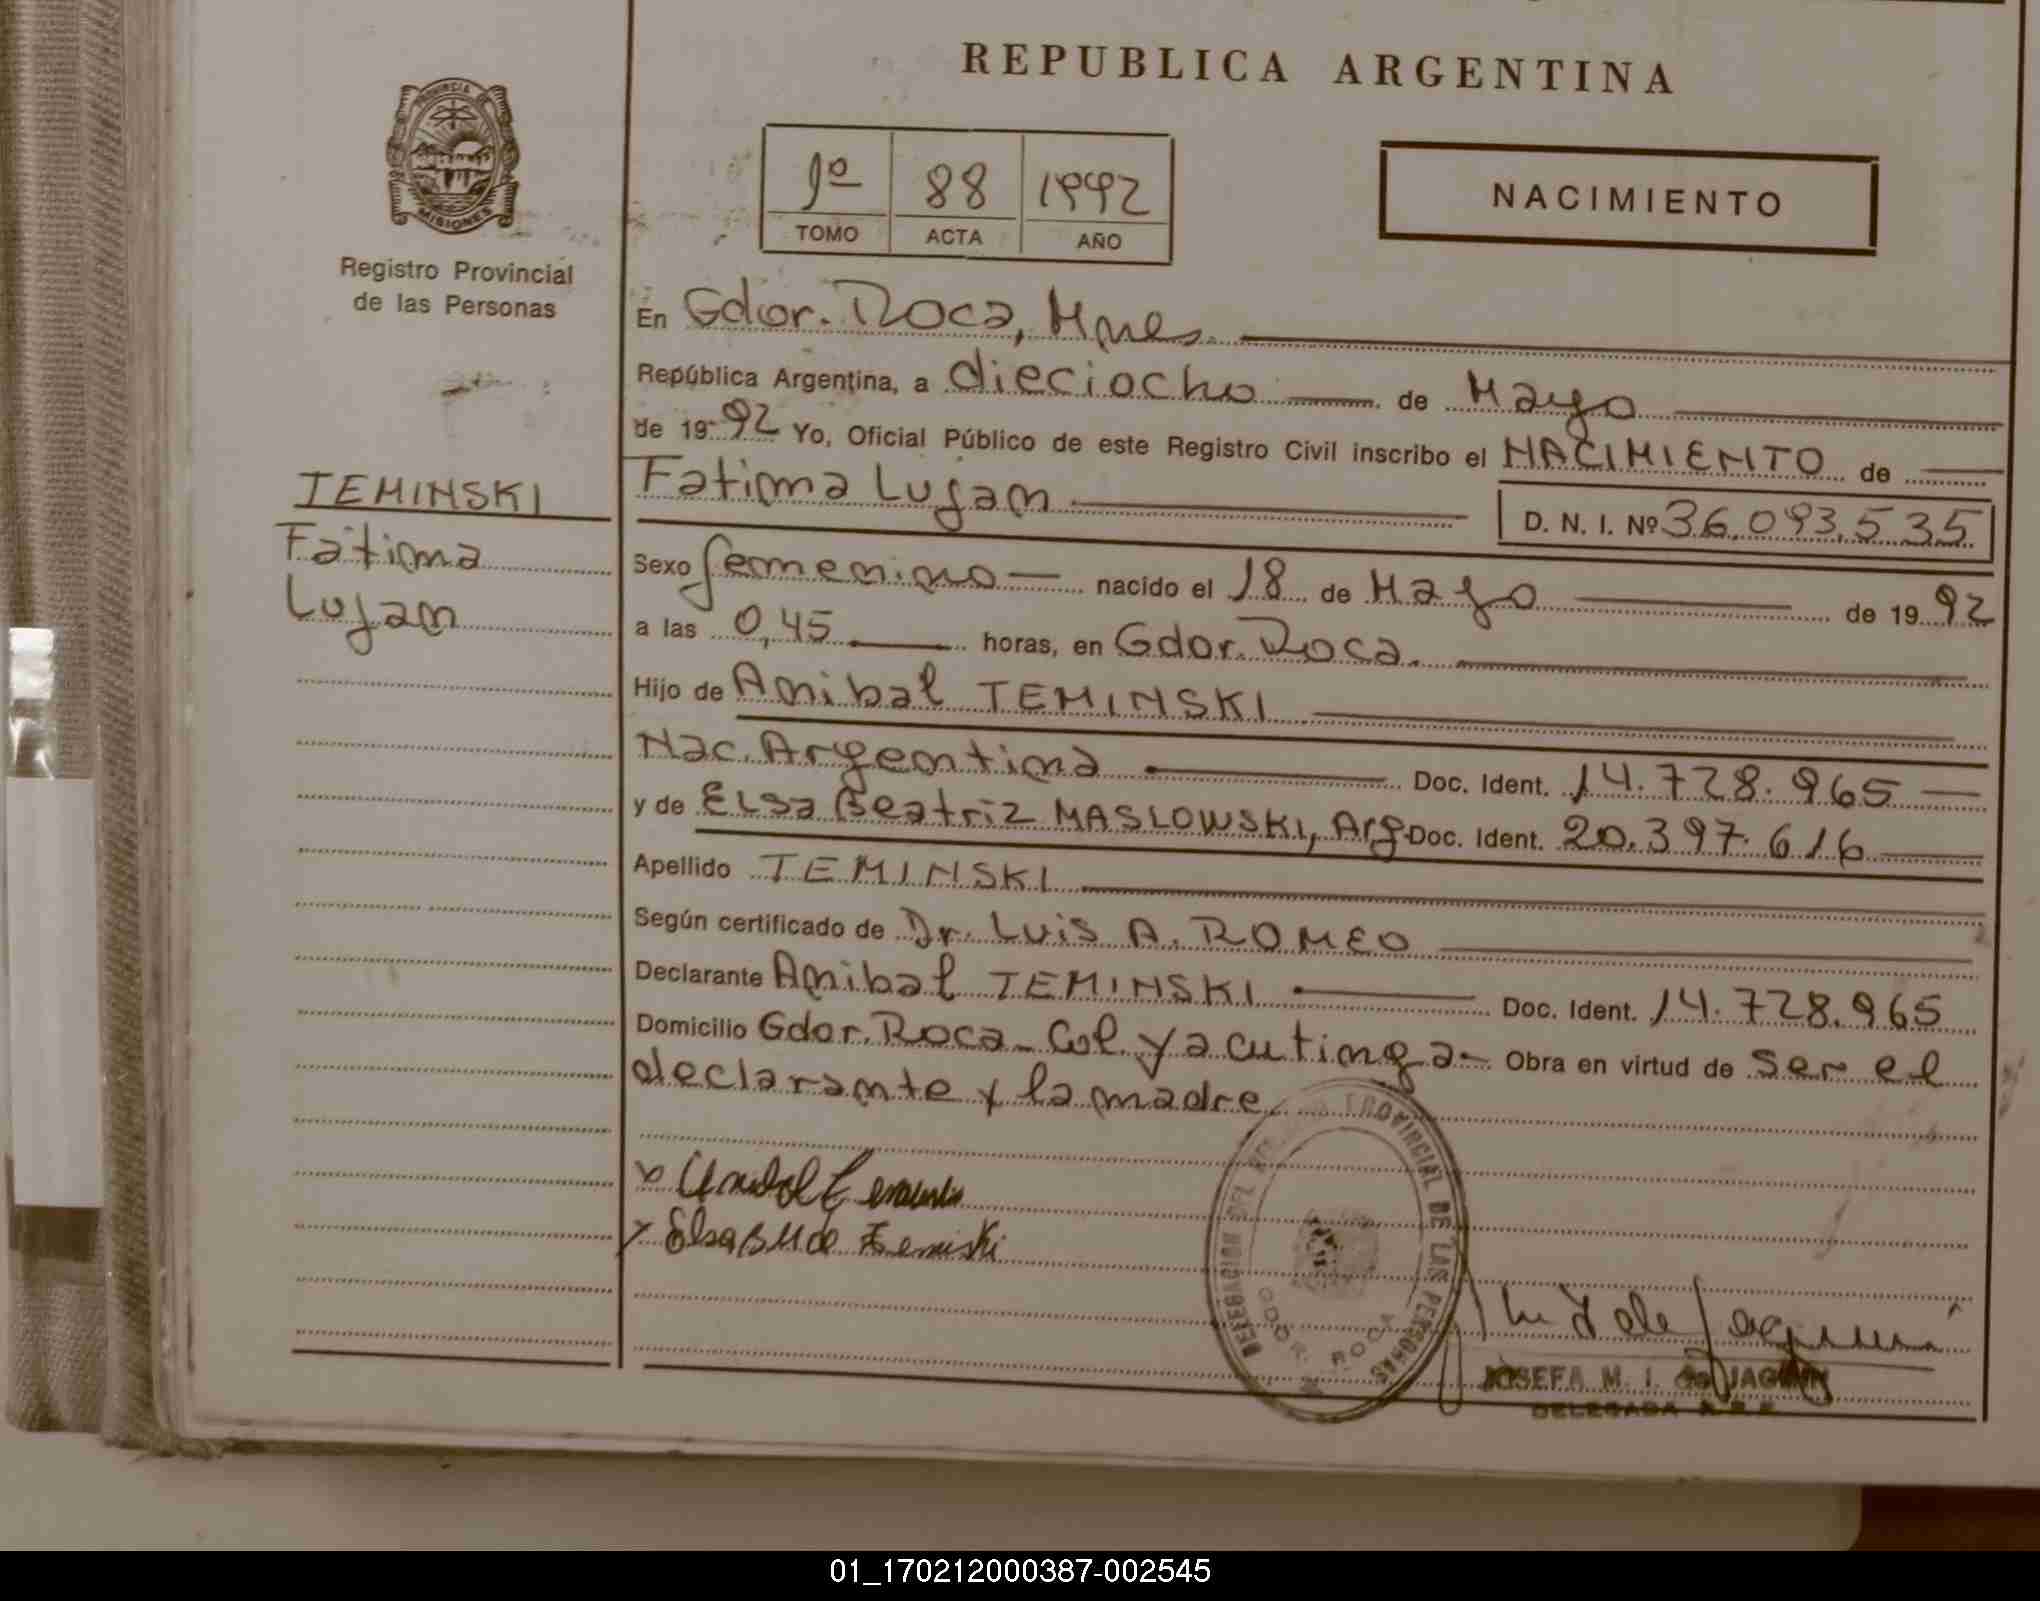 REPUBLICA ARGENTINA
PROVINCIA DE
MISIONES
Registro Provincial
de las Personas
1º 88 1992
TOMO ACTA AÑO
NACIMIENTO
En Gdor. Roca, Mnes.
República Argentina, a dieciocho de Mayo
de 1992 Yo, Oficial Público de este Registro Civil inscribo el NACIMIENTO de
TEMINSKI
Fatima
Lujan
Fatima Lujan
D. N. I. Nº 36.093.535
Sexo femenino nacido el 18 de Mayo de 1992
a las 0,45 horas, en Gdor. Roca.
Hijo de Anibal TEMINSKI
Nac. Argentina Doc. Ident. 14.728.965
y de Elsa Beatriz MASLOWSKI, Arg. Doc. Ident. 20.397.616
Apellido TEMINSKI
Según certificado de Dr. Luis A. ROMEO
Declarante Anibal TEMINSKI Doc. Ident. 14.728.965
Domicilio Gdor. Roca - Col. Yacutinga - Obra en virtud de ser el
declarante y la madre.
DELEGACION DEL PROVINCIAL DE LAS PERSONAS
GDOR. ROCA
Elsa B M de Temiski
JOSEFA M. I. de
DELEGADA
01_170212000387-002545